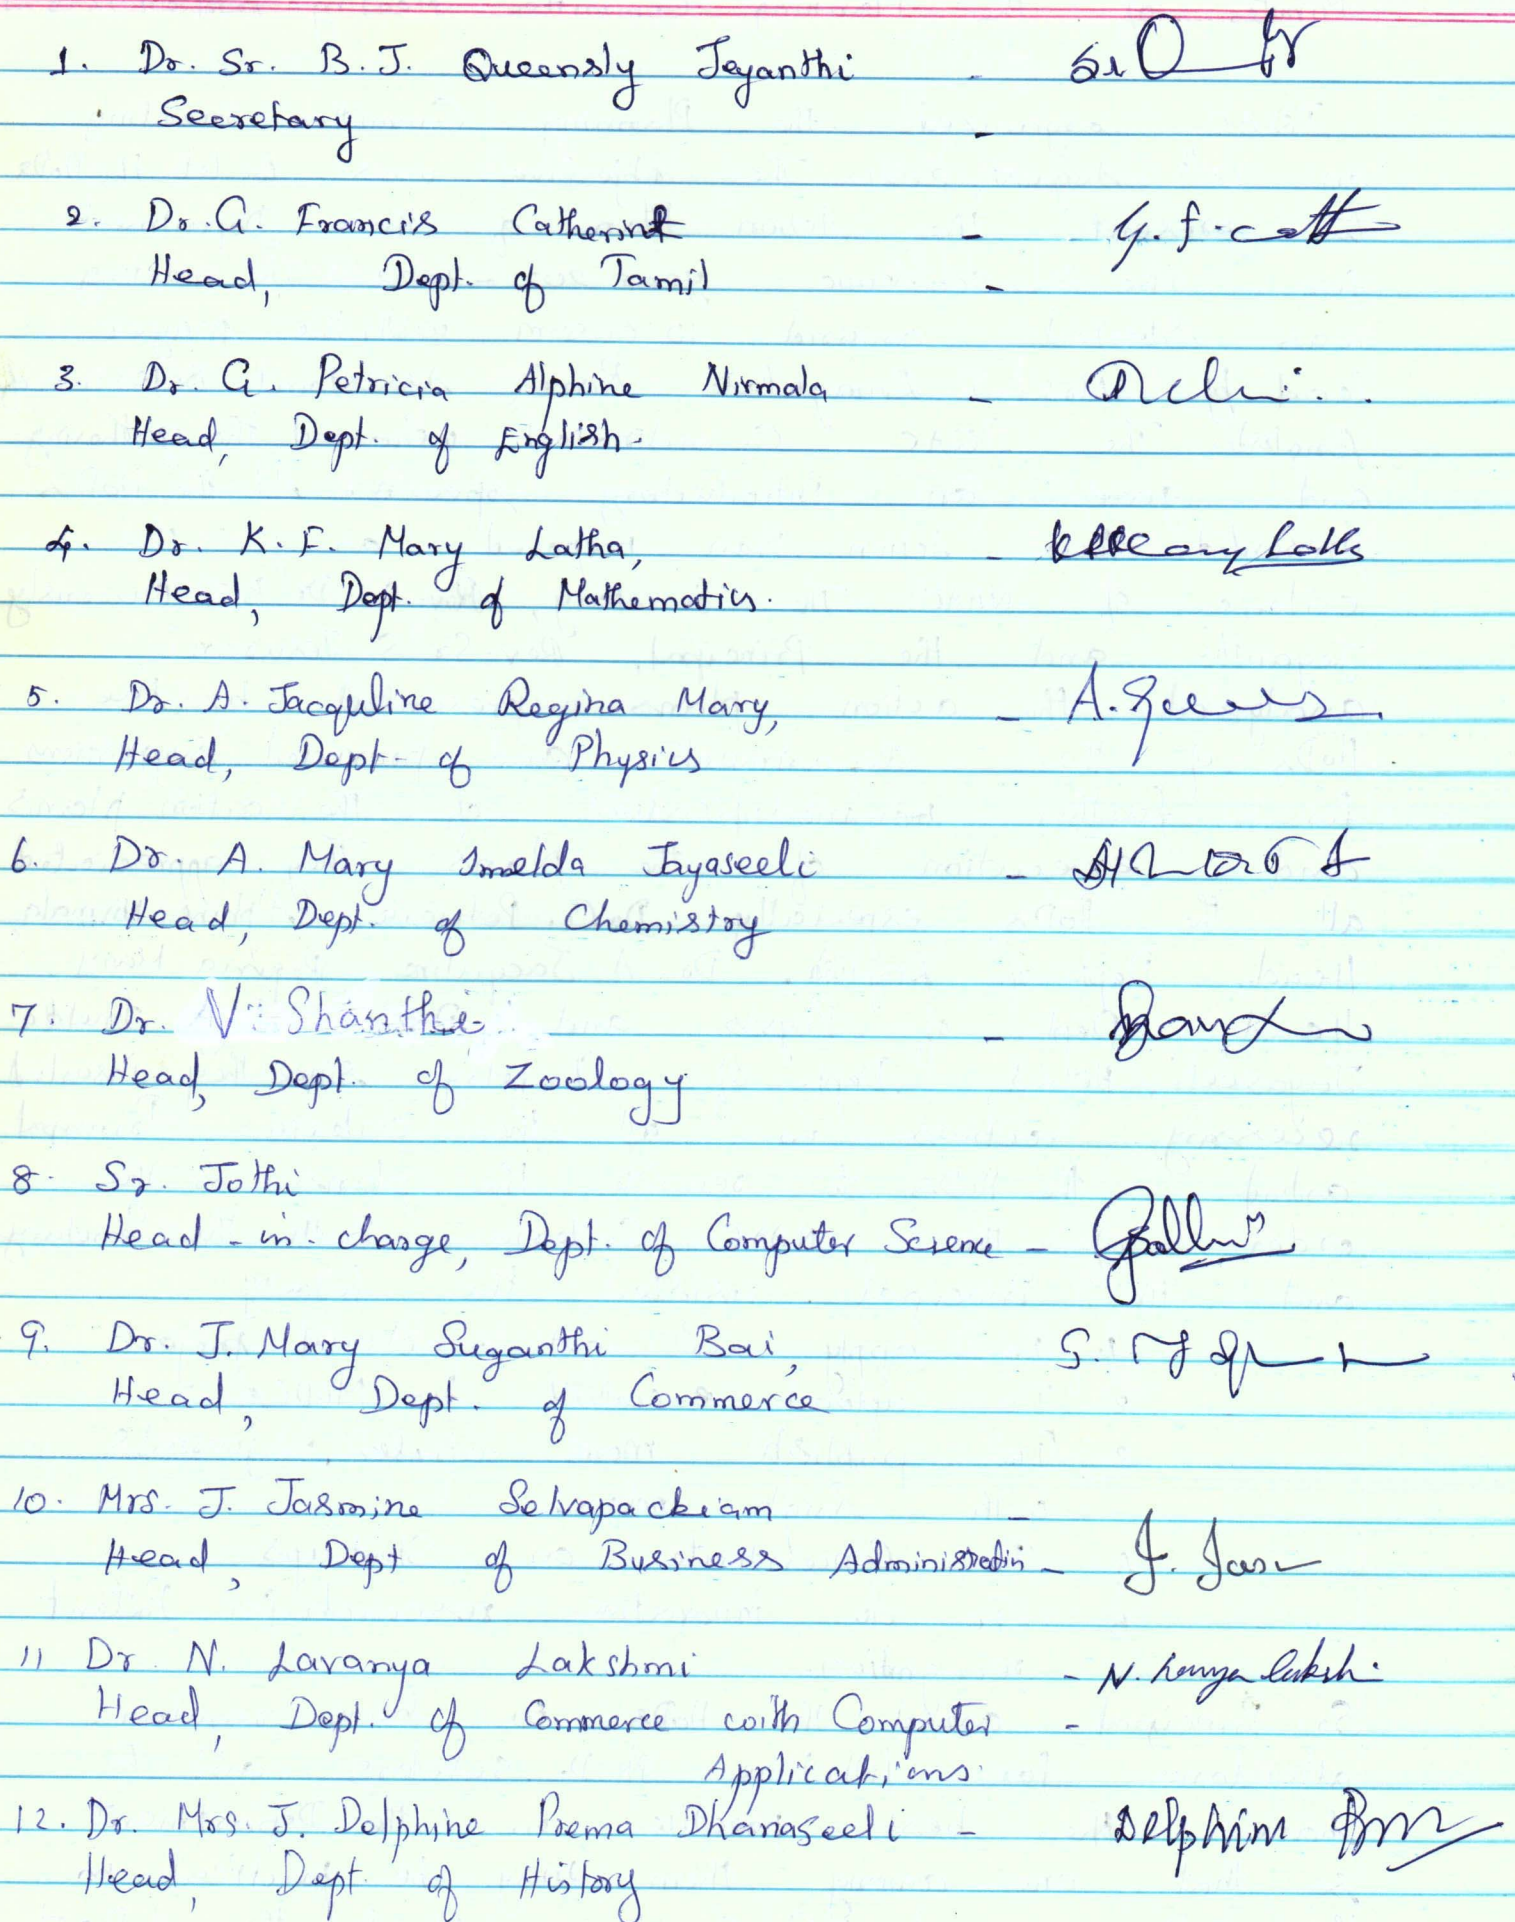 1. Dr. Sr. B. J. Queensly Jeyanthi -
Secretary -
2. Dr. G. Francis Catherine - G. f. cath
Head, Dept. of Tamil -
3. Dr. G. Petricia Alphine Nirmala -
Head, Dept. of English.
4. Dr. K. F. Mary Latha, - Mary Latha
Head, Dept. of Mathematics.
5. Dr. A. Jacquline Regina Mary, - A.
Head, Dept. of Physics
6. Dr. A. Mary Imelda Jayaseeli -
Head, Dept. of Chemistry
7. Dr. V. Shanthi -
Head, Dept. of Zoology
8. Sr. Jothi
Head - in - charge, Dept. of Computer Science -
9. Dr. J. Mary Suganthi Bai,
Head, Dept. of Commerce
10. Mrs. J. Jasmine Selvapackiam -
Head, Dept of Business Administratin - J. Jas
11 Dr N. Lavanya Lakshmi - N.
Head, Dept. of Commerce with Computer -
Applications.
12. Dr. Mrs. J. Delphine Prema Dhanaseeli - Delphine
Head, Dept of History